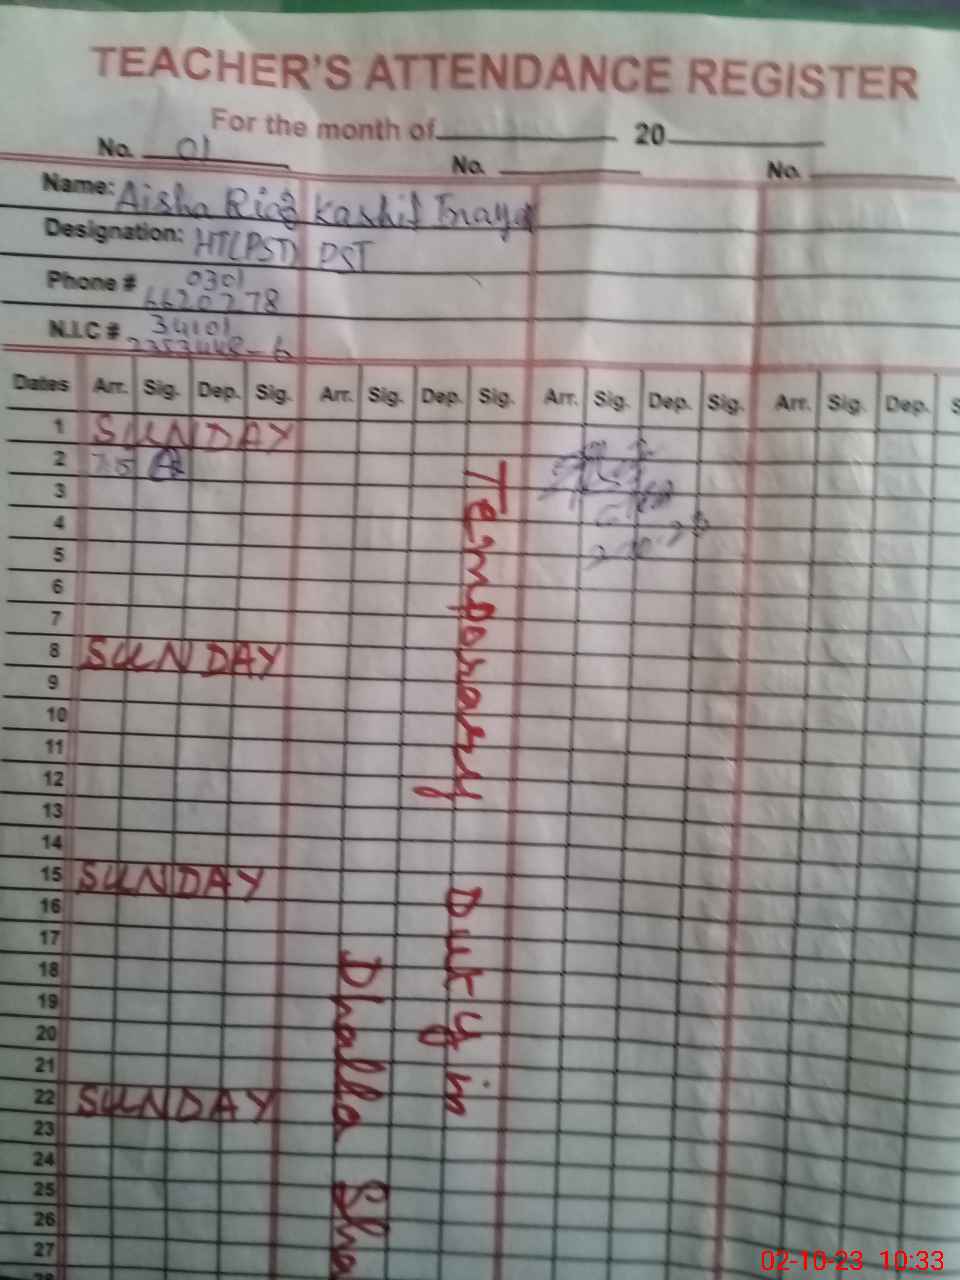 TEACHER'S ATTENDANCE REGISTER
For the month of 20
No. 01 No. No.
Name: Aisha Riaz Kashif Inayat
Designation: HT(PST) PST
Phone # 0301
6620778
N.I.C # 34101
Dates Arr. Sig. Dep. Sig. Arr. Sig. Dep. Sig. Arr. Sig. Dep. Sig. Arr. Sig. Dep. S
1 SUNDAY
2
3
4
5
6
7
8 SUNDAY
9
10
11
12
13
14
15 SUNDAY
16
17
18
19
20
21
22 SUNDAY
23
24
25
26
27
28
Temporary Duty in
Dhalla Sha
02-10-23 10:33